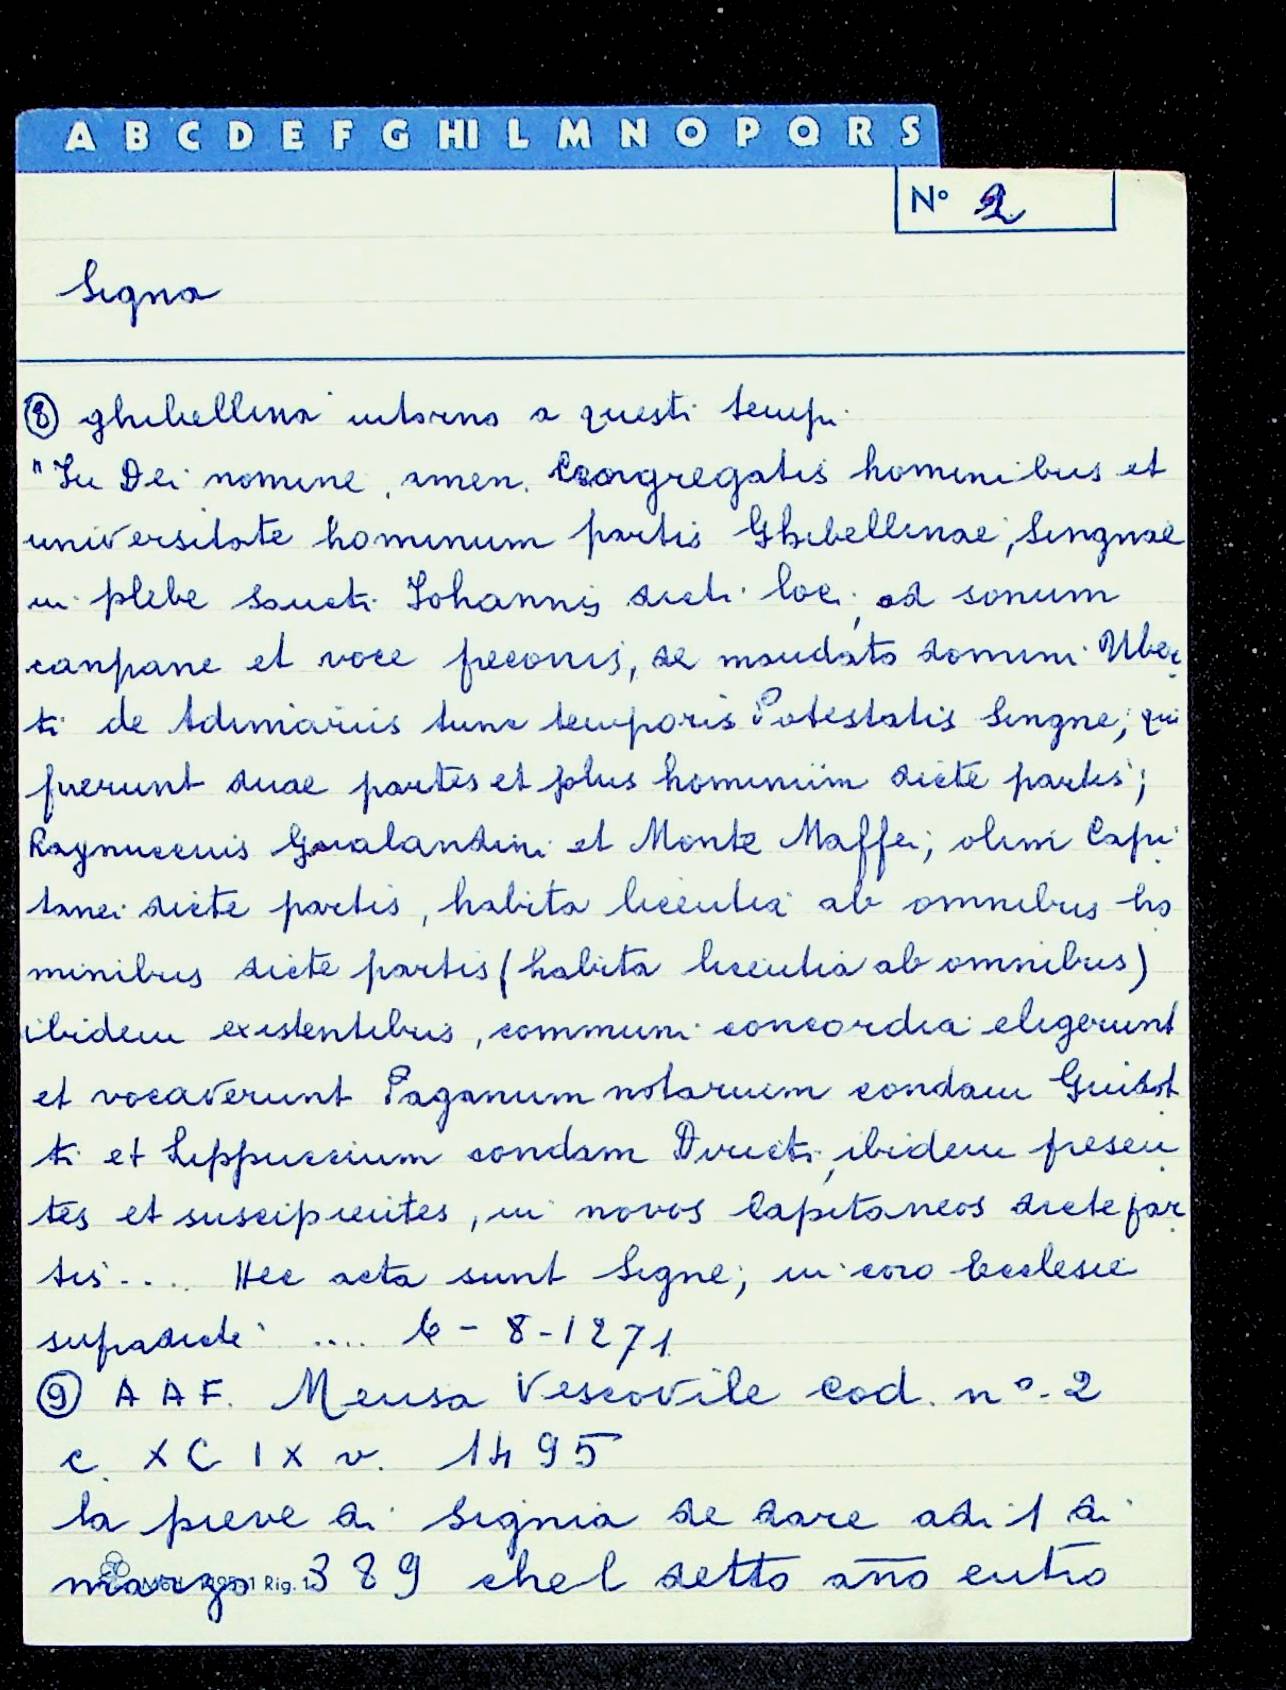 A B C D E F G HI L M N O P Q R S
N° 2
Signa
⑧ ghibellina intorno a questi tempi.
"In Dei nomine, amen. Congregatis hominibus et
universitate hominum partis Ghibellinae, Singnae
in plebe Sancti Johannis dicti loci, ad sonum
canpane et voce preconis, de mandato domini Uber
ti de Adimariis tunc temporis Potestatis Singne, qui
fuerunt duae partes et plus hominum dicte partis;
Raynuccius Gualandini et Monte Maffei, olim Capi
tanei dicte partis, habita licentia ab omnibus ho
minibus dicte partis (habita licentia ab omnibus)
ibidem existentibus, communi concordia eligerunt
et vocaverunt Paganum notarium condam Guidot
ti et Lippuccium condam Diricti, ibidem presen
tes et suscipientes, in novos Capitaneos dicte par
tis .... Hec acta sunt Signe, in coro Ecclesie
supradicte .... 6-8-1271
⑨ A A F. Mensa Vescovile Cod. n°. 2
c. XC IX v. 1495
la pieve di Signia de dare adi 1 di
marzo 389 chel detto año entro
Rig. 1